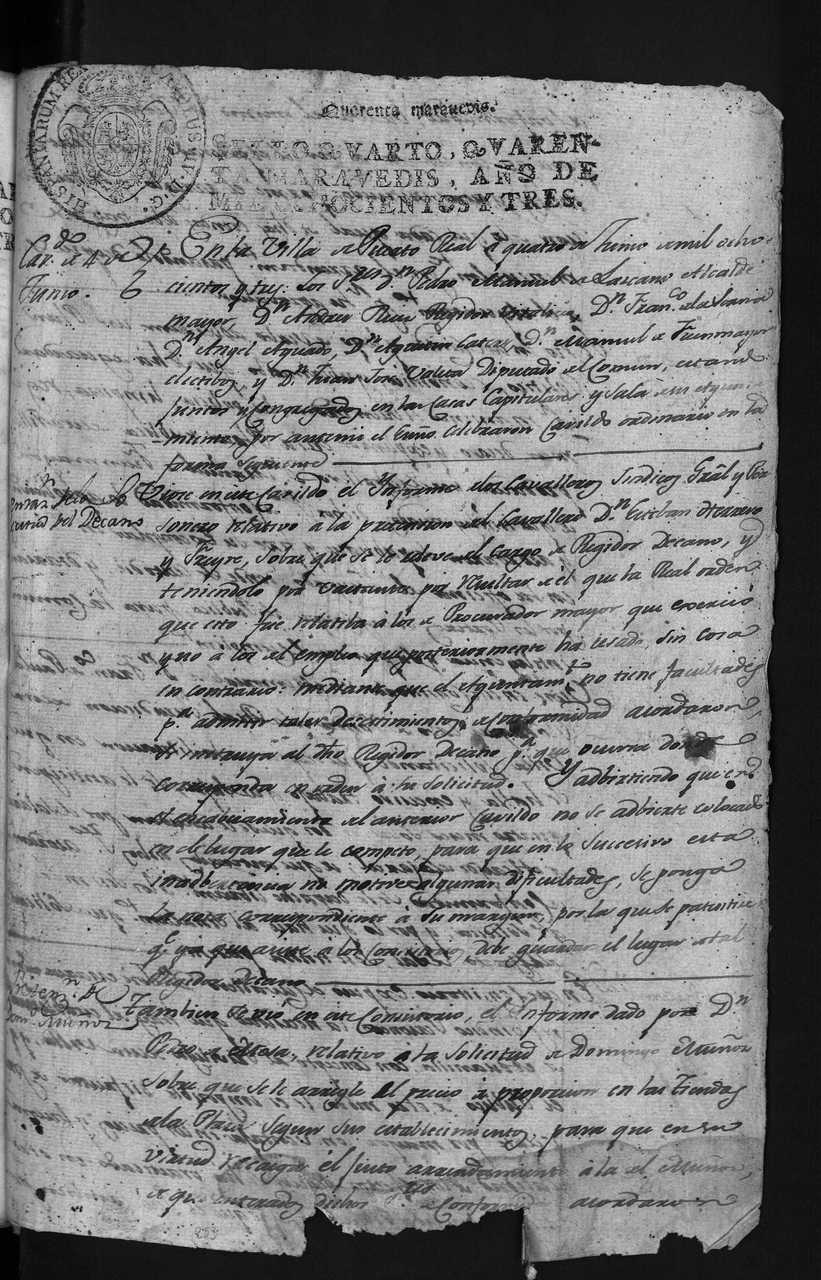 HISPANIARUM REX
Quarenta maravedis.
SELLO QVARTO, QVAREN-
TA MARAVEDIS, AÑO DE
MIL OCHOCIENTOS Y TRES.
Cav.do de 4 de
Junio.
En la Villa de Puerto Real, a quatro de Junio de mil ocho-
cientos y tres: Los S.res D.n Pedro Manuel de Lascano Alcalde
mayor, D.n Andres Ruiz Regidor D.n Fran.co de la
D.n Angel Aguado, D.n Agustin D.n Manuel de Fuenmayor
electibos, y D.n Juan Jose Diputado del Comun, estand.
juntos y Congregados en las Casas Capitulares y Sala de su
por antemi el Esño. Celebraron Cavildo ordinario en la
forma siguiente
sobre la So
licitud del Decano
Viose en este Cavildo el Informe de los Cavalleros Sindicos Gral y Per
sonero relativo à la pretension del Cavallero D.n Esteban Herrera
y Freyre, sobre que se le releve del Cargo de Regidor Decano, y
teniendolo por vacante por resultar de él que la Real orden
que esto fue relatiba à los de Procurador mayor que exerció
y no a los del empleo que posteriormente ha usado, sin cosa
en contrario: mediante que el Ayuntam.to no tiene facultades
p.a admitir tales desestimientos, de conformidad acordaron
se al dho Regidor Decano p.a que ocurra donde
corresponda en orden à su solicitud. Y adbirtiendo que en
el encabezamiento del anterior Cavildo no se adbierte colocad
en el lugar que le compete, para que en lo successivo esta
inadbertencia no motive algunas dificultades, se ponga
la nota correspondiente à su margen, por la que se patentice
q.e ya que asiste a los debe guardar el lugar de tal
Regidor Decano
Preten.n de
Dom.o Muñoz
Tambien se vió en este Consistorio, el Informe dado por D.n
Pedro de Mesa, relativo à la solicitud de Domingo Muñoz
sobre que se le arregle el precio à proporcion en las Tiendas
de la Plaza segun sus establecimientos, para que en su
virtud recaiga el justo arrendamiento à la del Muñoz,
de que enterados dichos S.res de Conformid. acordaron